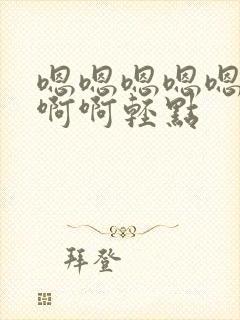 嗯嗯嗯嗯嗯
啊啊轻點
拜登